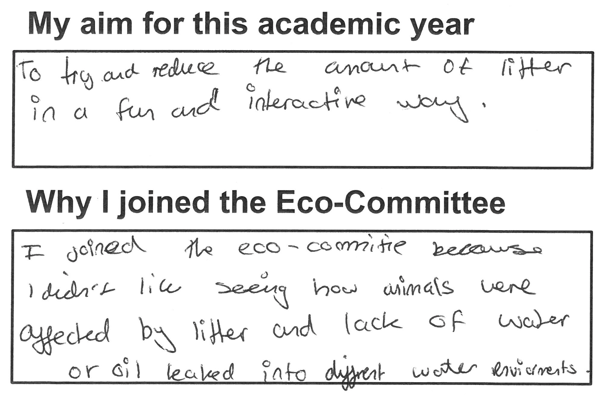 My aim for this academic year
To try and reduce the amount of litter
in a fun and interactive way.
Why I joined the Eco-Committee
I joined the eco-commitie because
I didn't like seeing how animals were
affected by litter and lack of water
or oil leaked into diffrent water enviorments.